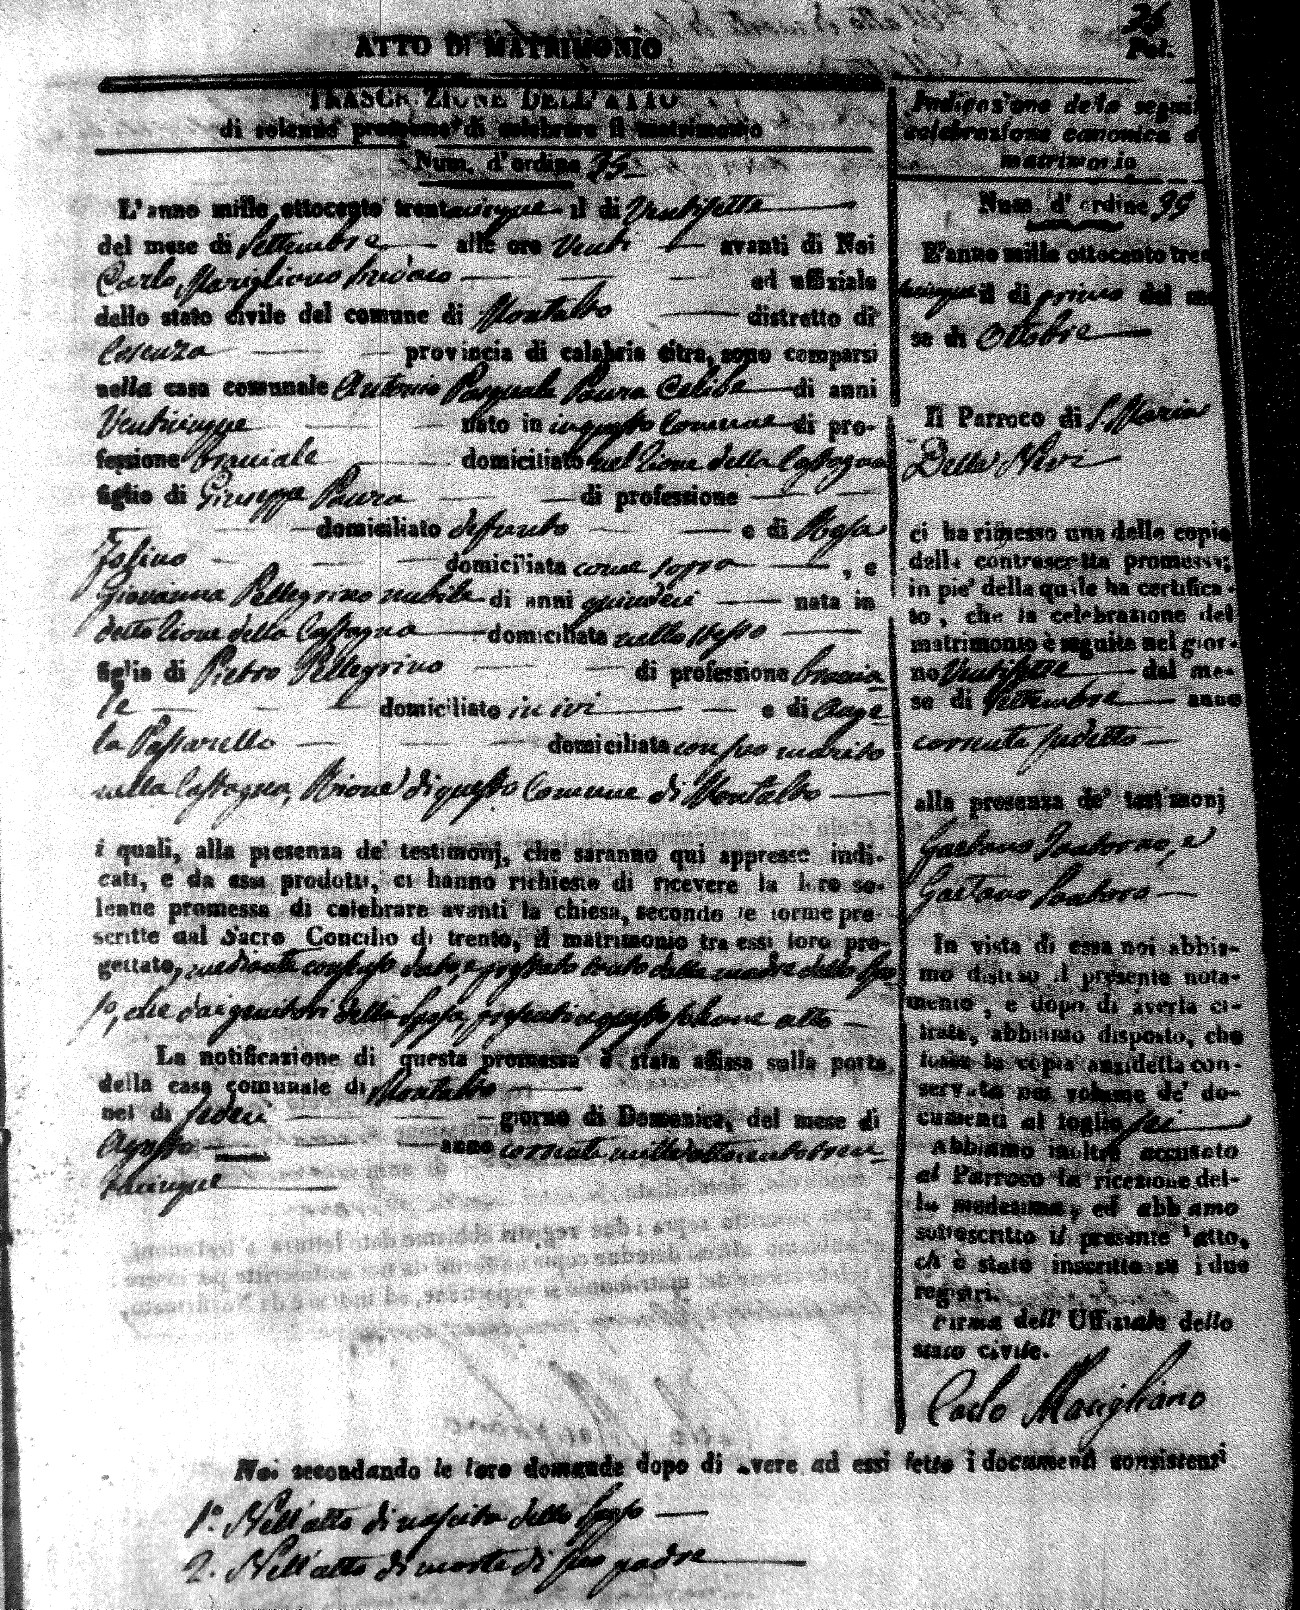 36
Pol.
ATTO DI MATRIMONIO
TRASCRIZIONE DELL'ATTO
di solenne promessa di celebrare il matrimonio
Num. d'ordine 35
L'anno mille ottocento trentacinque il di Ventisette
del mese di Settembre alle ore Venti avanti di Noi
Carlo Marigliano Sindaco ed uffiziale
dello stato civile del comune di Montalto distretto di
Cosenza provincia di calabria citra, sono comparsi
nella casa comunale Antonio Pasquale Paura Celibe di anni
Venticinque nato in questo Comune di pro-
fessione bracciale domiciliato nel Rione della Castagna
figlio di Giuseppe Paura di professione
domiciliato defunto e di Rosa
Folino domiciliata come sopra , e
Giovanna Pellegrino nubile di anni quindici nata in
detto Rione della Castagna domiciliata nello stesso
figlia di Pietro Pellegrino di professione braccia
le domiciliato in ivi e di Ange
la Passarello domiciliata con suo marito
nella Castagna, Rione di questo Comune di Montalto
i quali, alla presenza de' testimonj, che saranno qui appresso indi-
cati, e da essi prodotti, ci hanno richiesto di ricevere la loro so-
lenne promessa di celebrare avanti la chiesa, secondo le forme pre-
scritte dal Sacro Concilio di trento, il matrimonio tra essi loro pro-
gettato, mediante consenso dato, e prestato tanto dalla madre dello Spo
so, che dai genitori della Sposa, presenti a questo solenne atto
La notificazione di questa promessa è stata affissa sulla porta
della casa comunale di Montalto
nel di sedeci giorno di Domenica, del mese di
Agosto anno corrente mille ottocento tren
tacinque
Indicazione della seguita
celebrazione canonica del
matrimonio
Num. d'ordine 35
L'anno mille ottocento tren
tacinque il di primo del me
se di Ottobre
Il Parroco di S. Maria
Della Nivi
ci ha rimesso una delle copie
della controscritta promessa;
in piè della quale ha certifica-
to, che la celebrazione del
matrimonio è seguita nel gior-
no Ventisette del me-
se di Settembre anno
corrente sudetto
alla presenza de' testimonj
Gaetano , e
Gaetano
In vista di essa noi abbia-
mo disteso il presente nota-
mento, e dopo di averla ci-
frata, abbiamo disposto, che
fosse la copia anzidetta con-
servata nel volume de' do-
cumenti al foglio sei
Abbiamo inoltre accusato
al Parroco la ricezione del-
la medesima, ed abbiamo
sottoscritto il presente atto,
ch è stato inscritto su i due
registri.
Firma dell' Uffiziale dello
stato civile.
Carlo Marigliano
Noi secondando le loro domande dopo di avere ad essi letto i documenti consistenti
1.° Nell'atto di nascita dello Sposo
2. Nell'atto di morte di suo padre